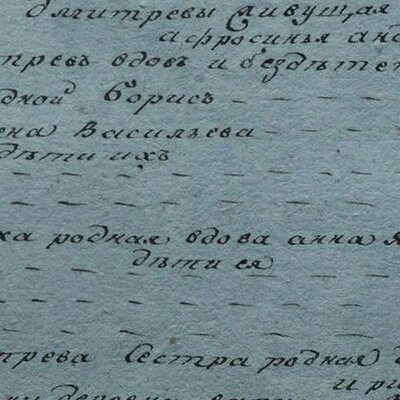 дмитревы живущая
афросинья анд
тревъ вдовъ и бездѣте
дной Борисъ
ена Васильева
дѣти ихъ
ха родная вдова анна я
дѣти ея
трева Сестра родная